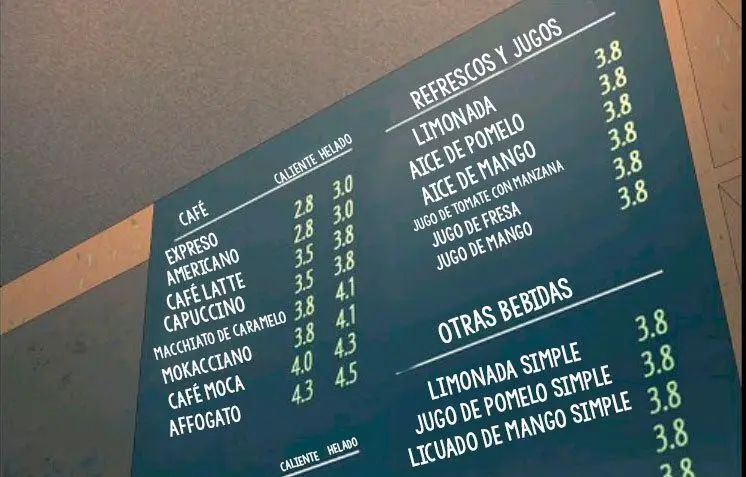 CAFÉ CALIENTE HELADO
EXPRESO 2.8 3.0
AMERICANO 2.8 3.0
CAFÉ LATTE 3.5 3.8
CAPUCCINO 3.5 3.8
MACCHIATO DE CARAMELO 3.8 4.1
MOKACCIANO 3.8 4.1
CAFÉ MOCA 4.0 4.3
AFFOGATO 4.3 4.5
CALIENTE HELADO
REFRESCOS Y JUGOS
LIMONADA 3.8
AICE DE POMELO 3.8
AICE DE MANGO 3.8
JUGO DE TOMATE CON MANZANA 3.8
JUGO DE FRESA 3.8
JUGO DE MANGO 3.8
OTRAS BEBIDAS
LIMONADA SIMPLE 3.8
JUGO DE POMELO SIMPLE 3.8
LICUADO DE MANGO SIMPLE 3.8
3.8
3.8